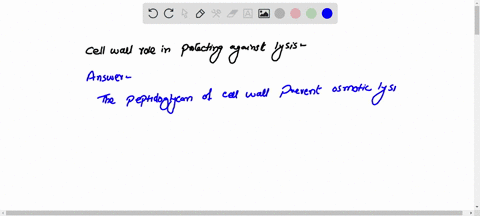 Cell wall role in protecting against lysis-
Answer-
The peptidoglycan of cell wall prevent osmotic lysi